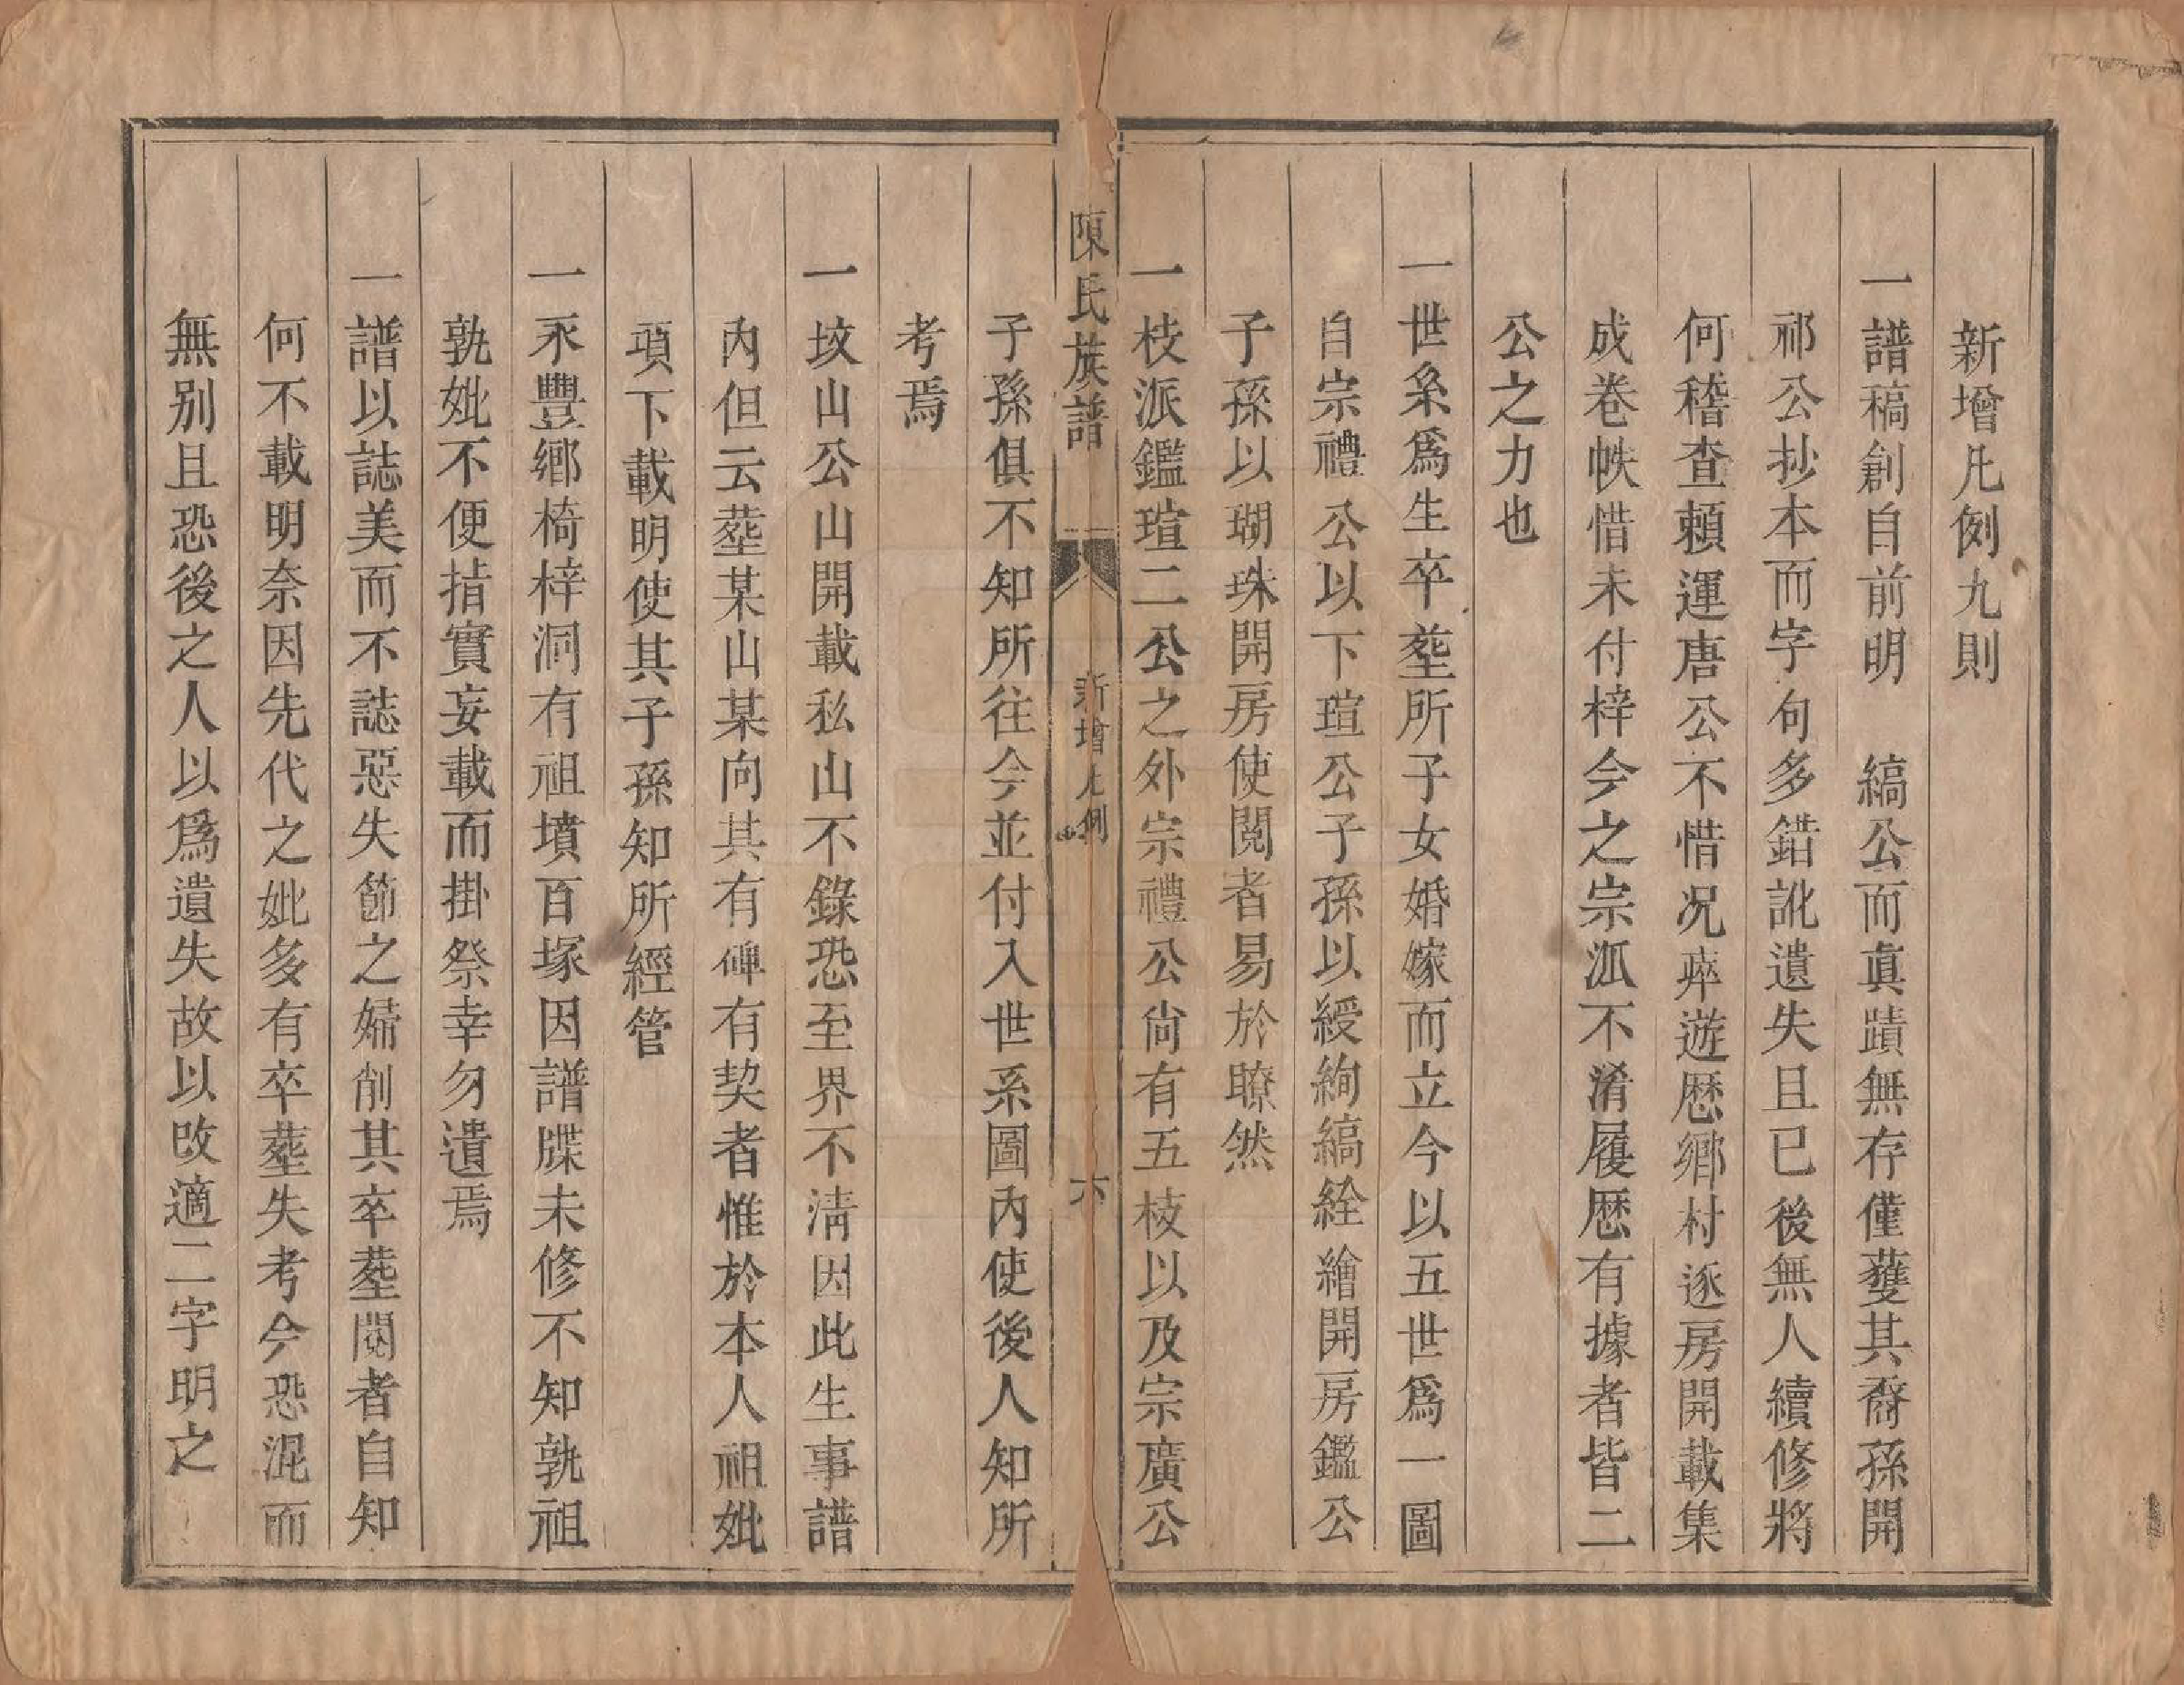 新增凡例九則
一譜稿創自前明　縞公而眞蹟無存僅蒦其裔孫開
祁公抄本而字句多錯訛遺失且已後無人續修將
何稽查頼運唐公不惜况瘁遊歴鄉村逐房開載集
成巻帙惜未付梓今之宗派不淆履歴有據者皆二
公之力也
一世系爲生卒塟所子女婚嫁而立今以五世爲一圖
自宗禮公以下瑄公子孫以綬絢縞絟繪開房鑑公
子孫以瑚珠開房使閱者易於瞭然
一枝派鑑瑄二公之外宗禮公尙有五枝以及宗廣公
陳氏族譜
新增凡例
六
子孫俱不知所往今並付入世系圖內使後人知所
考焉
一坟山公山開載私山不錄恐至界不淸因此生事譜
內但云塟某山某向其有碑有契者惟於本人祖妣
項下載明使其子孫知所經管
一永豐鄉椅梓洞有祖墳百塚因譜牒未修不知孰祖
孰妣不便掯實妄載而掛祭幸勿遺焉
一譜以誌美而不誌惡失節之婦削其卒塟閱者自知
何不載明奈因先代之妣多有卒塟失考今恐混而
無别且恐後之人以爲遺失故以改適二字明之